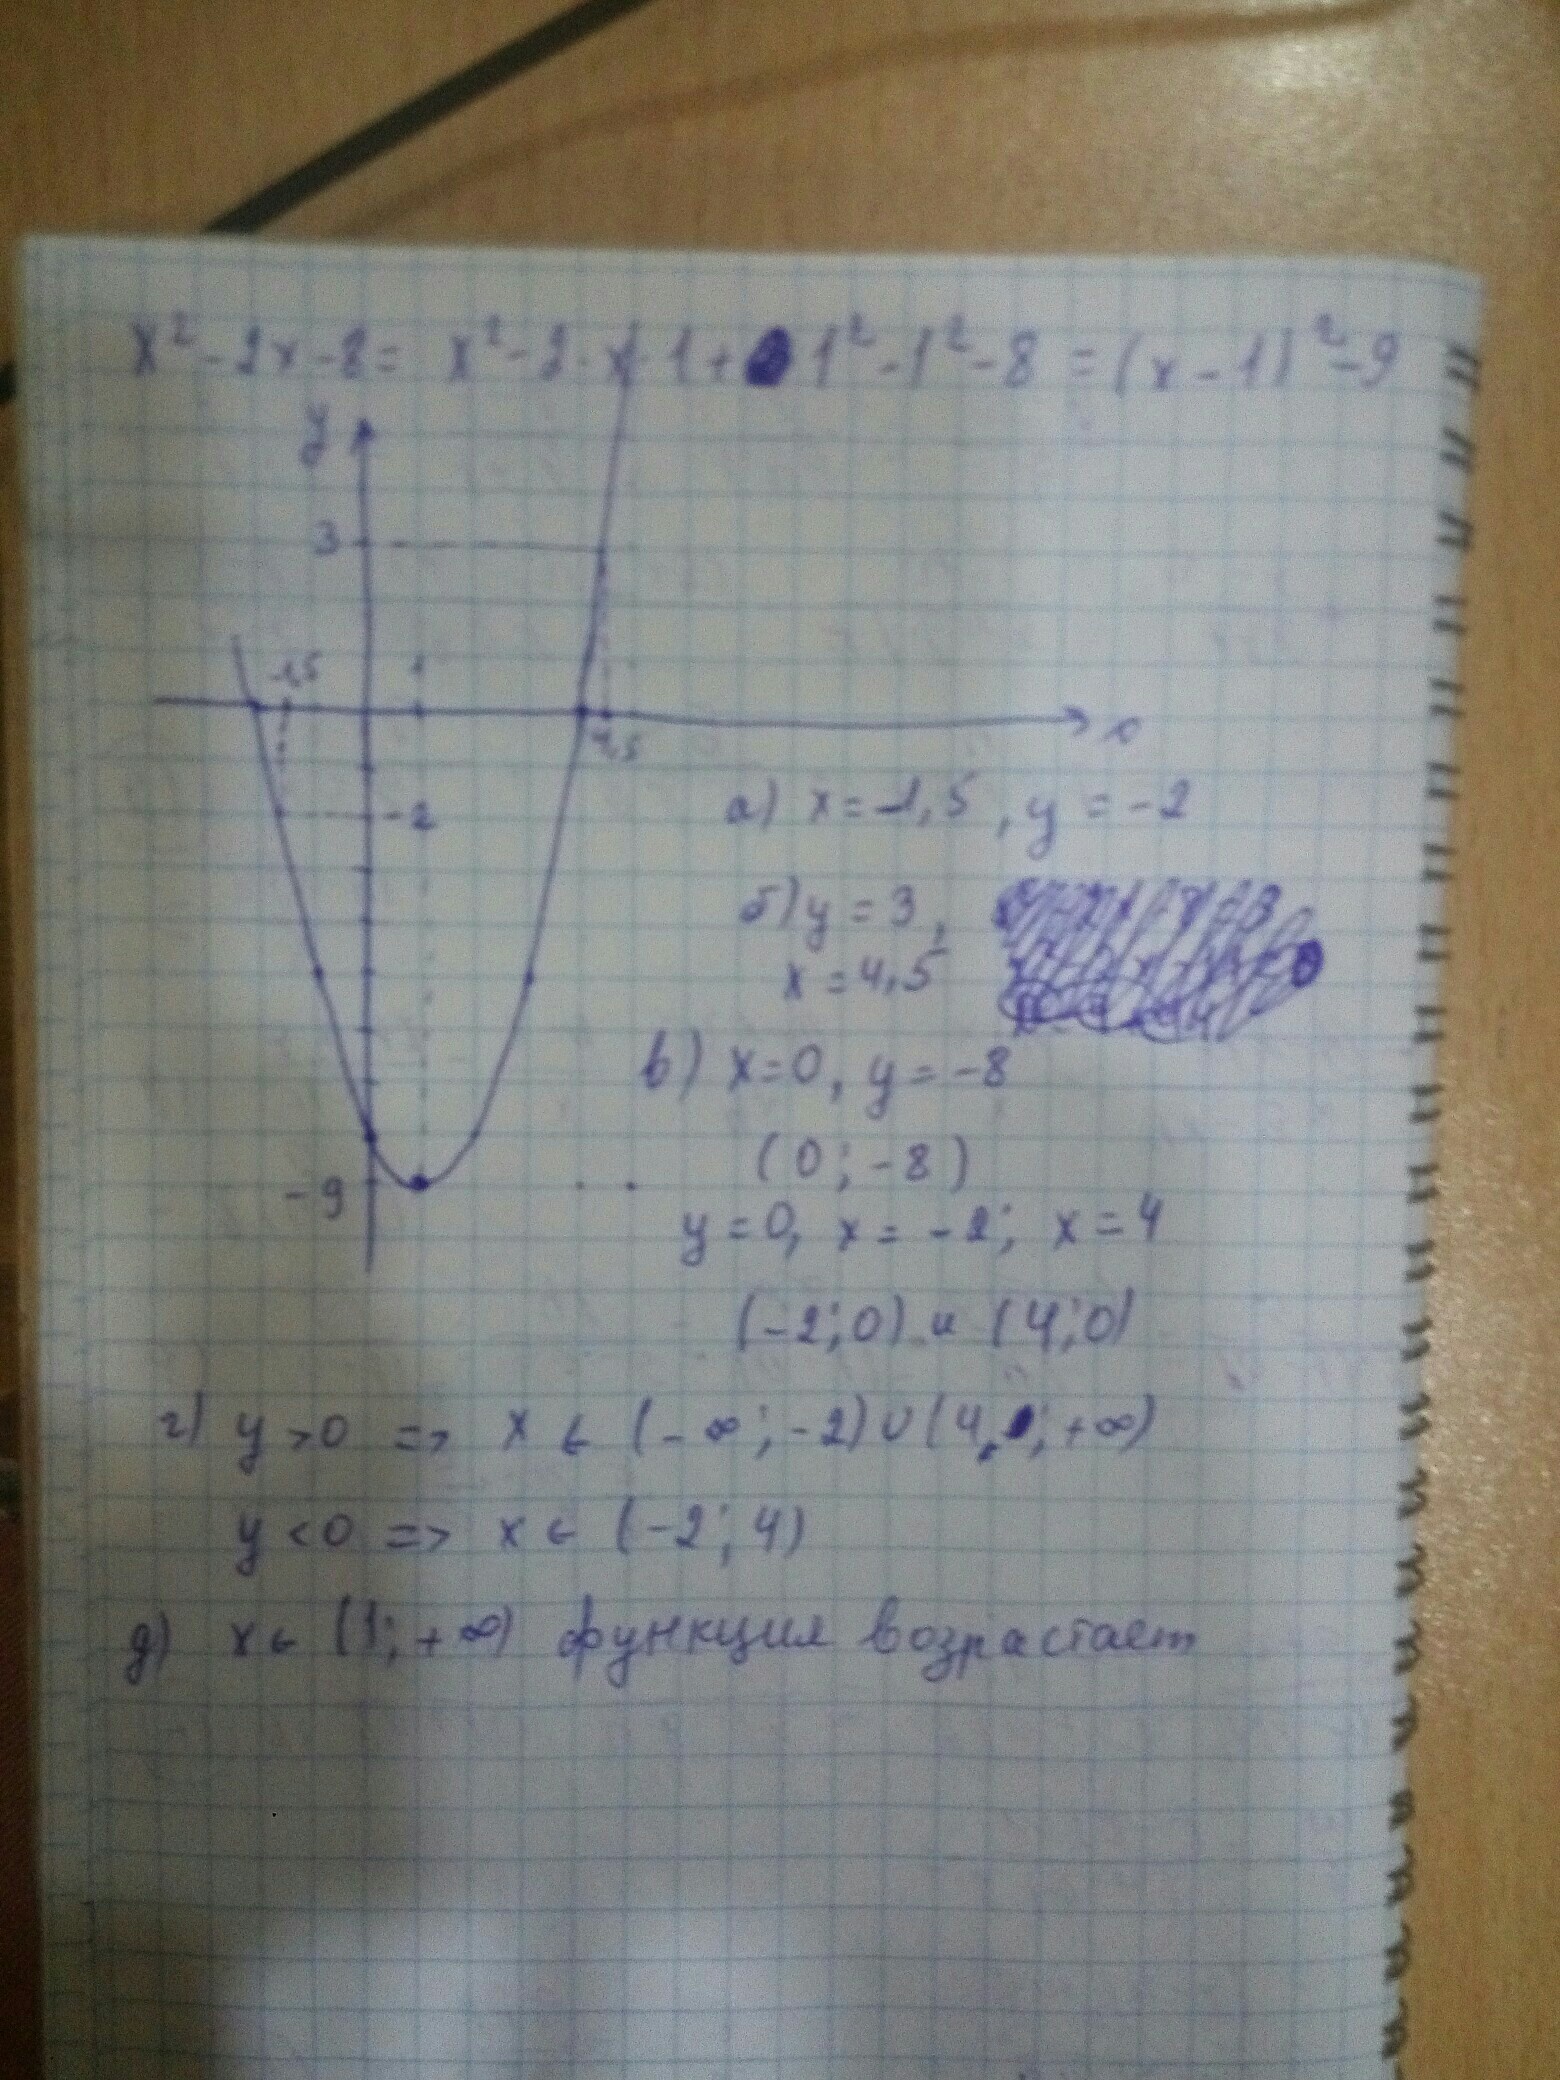 x² - 2x - 8 = x² - 2 · x · 1 + 1² - 1² - 8 = (x - 1)² - 9
y
3
-1,5 1
4,5
-2
а) x = -1,5, y = -2
б) y = 3,
x = 4,5
в) x = 0, y = -8
(0; -8)
-9
y = 0, x = -2; x = 4
(-2; 0) и (4; 0)
г) y > 0 => x ∈ (-∞; -2) ∪ (4; +∞)
y < 0 => x ∈ (-2; 4)
д) x ∈ (1; +∞) функция возрастает